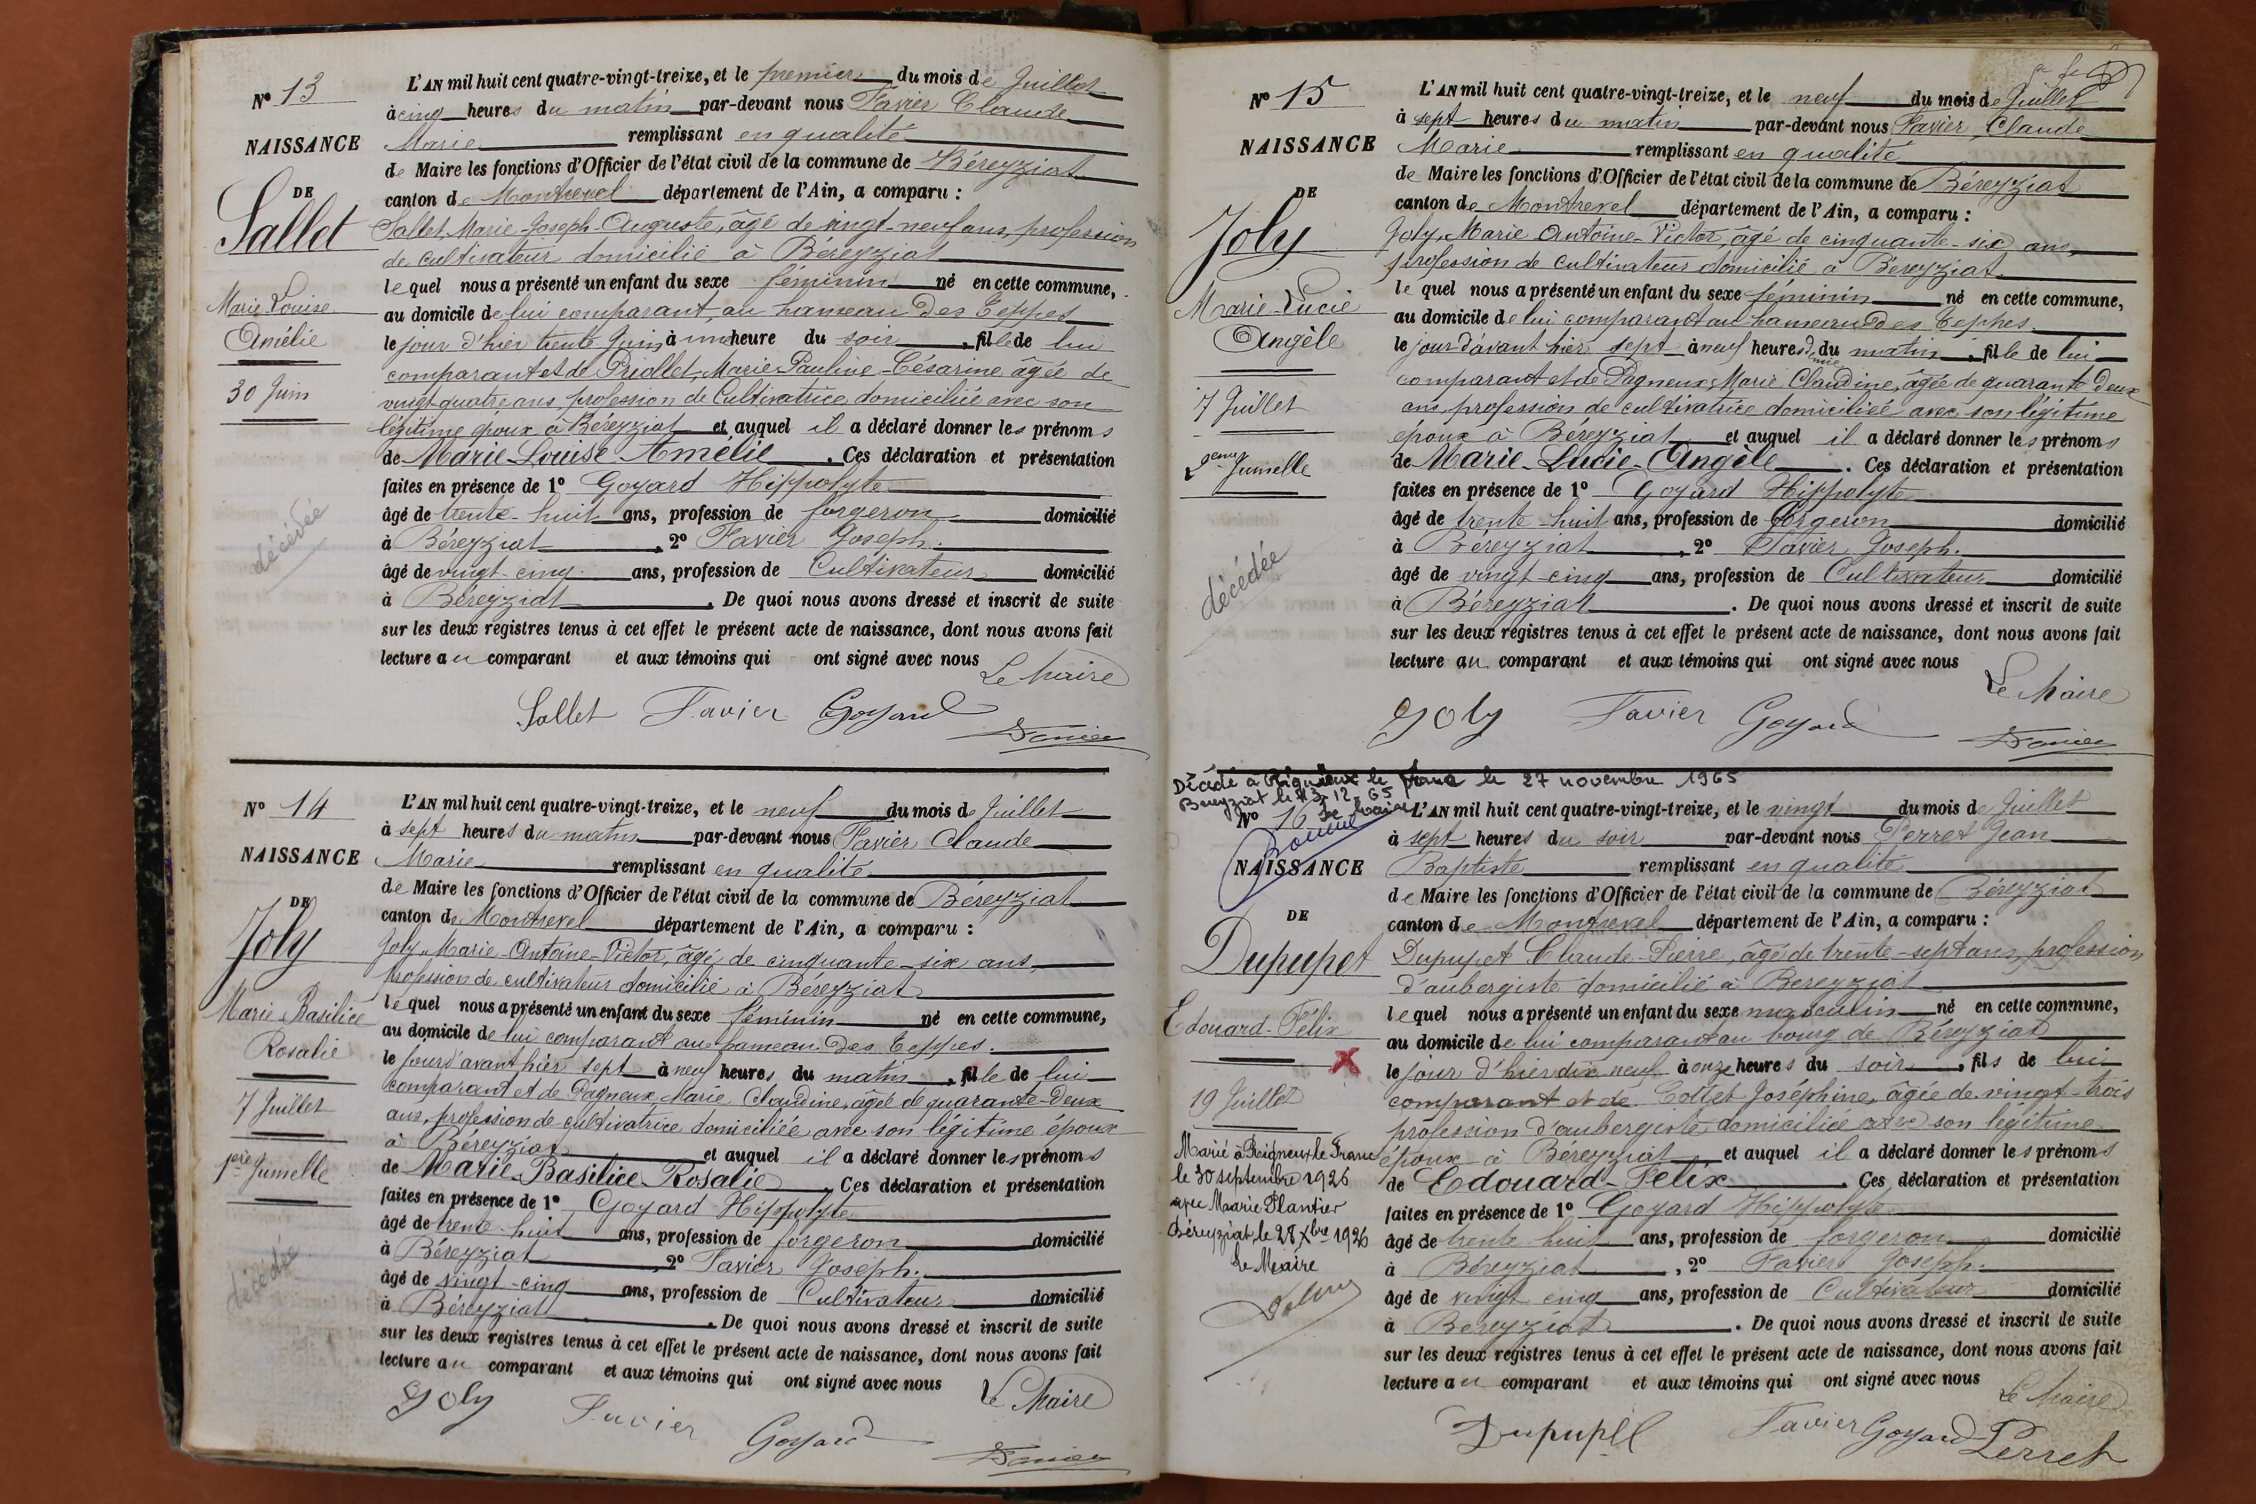 N° 13
NAISSANCE
DE
Sallet
Marie Louise
Amélie
30 Juin
décédée
L'AN mil huit cent quatre-vingt-treize, et le premier du mois de Juillet
à cinq heures du matin par-devant nous Favier Claude
Marie remplissant en qualité
de Maire les fonctions d'Officier de l'état civil de la commune de Béreyziat
canton de Montrevel département de l'Ain, a comparu :
Sallet, Marie-Joseph-Auguste, âgé de vingt-neuf ans, profession
de cultivateur domicilié à Béreyziat
lequel nous a présenté un enfant du sexe féminin né en cette commune,
au domicile de lui comparant, au hameau Des Teppes
le jour d'hier trente Juin à une heure du soir, fille de lui
comparant et de Priollet, Marie-Pauline-Césarine âgée de
vingt-quatre ans, profession de Cultivatrice domiciliée avec son
légitime époux à Béreyziat et auquel il a déclaré donner les prénoms
de Marie-Louise-Amélie. Ces déclaration et présentation
faites en présence de 1° Goyard Hippolyte
âgé de trente-huit ans, profession de forgeron domicilié
à Béreyziat, 2° Favier Joseph.
âgé de vingt-cinq ans, profession de Cultivateur domicilié
à Béreyziat. De quoi nous avons dressé et inscrit de suite
sur les deux registres tenus à cet effet le présent acte de naissance, dont nous avons fait
lecture au comparant et aux témoins qui ont signé avec nous
Le Maire
Sallet Favier Goyard
Favier
N° 14
NAISSANCE
DE
Joly
Marie Basilice
Rosalie
7 Juillet
1ère Jumelle
décédée
L'AN mil huit cent quatre-vingt-treize, et le neuf du mois de Juillet
à sept heures du matin par-devant nous Favier Claude
Marie remplissant en qualité
de Maire les fonctions d'Officier de l'état civil de la commune de Béreyziat
canton de Montrevel département de l'Ain, a comparu :
Joly, Marie-Antoine-Victor, âgé de cinquante-six ans,
profession de cultivateur domicilié à Béreyziat
lequel nous a présenté un enfant du sexe féminin né en cette commune,
au domicile de lui comparant au hameau Des Teppes.
le jour d'avant hier sept à neuf heures du matin, fille de lui
comparant et de Pagneux, Marie Claudine, âgée de quarante-Deux
ans, profession de cultivatrice domiciliée avec son légitime époux
à Béreyziat et auquel il a déclaré donner les prénoms
de Marie-Basilice Rosalie. Ces déclaration et présentation
faites en présence de 1° Goyard Hippolyte
âgé de trente-huit ans, profession de forgeron domicilié
à Béreyziat, 2° Favier Joseph.
âgé de vingt-cinq ans, profession de Cultivateur domicilié
à Béreyziat. De quoi nous avons dressé et inscrit de suite
sur les deux registres tenus à cet effet le présent acte de naissance, dont nous avons fait
lecture au comparant et aux témoins qui ont signé avec nous
Le Maire
Joly Favier Goyard
Favier
N° 15
NAISSANCE
DE
Joly
Marie-Lucie
Angèle
7 Juillet
2eme Jumelle
décédée
L'AN mil huit cent quatre-vingt-treize, et le neuf du mois de Juillet
à sept heures du matin par-devant nous Favier, Claude
Marie remplissant en qualité
de Maire les fonctions d'Officier de l'état civil de la commune de Béreyziat
canton de Montrevel département de l'Ain, a comparu :
Joly, Marie Antoine-Victor, âgé de cinquante-six ans,
profession de Cultivateur domicilié à Béreyziat
lequel nous a présenté un enfant du sexe féminin né en cette commune,
au domicile de lui comparant au hameau des Teppes.
le jour d'avant hier sept à neuf heures dmie du matin, fille de lui
comparant et de Pagneux, Marie Claudine, âgée de quarante Deux
ans, profession de cultivatrice domiciliée avec son légitime
époux à Béreyziat et auquel il a déclaré donner les prénoms
de Marie-Lucie-Angèle. Ces déclaration et présentation
faites en présence de 1° Goyard Hippolyte
âgé de trente-huit ans, profession de forgeron domicilié
à Béreyziat, 2° Favier Joseph.
âgé de vingt cinq ans, profession de Cultivateur domicilié
à Béreyziat. De quoi nous avons dressé et inscrit de suite
sur les deux registres tenus à cet effet le présent acte de naissance, dont nous avons fait
lecture au comparant et aux témoins qui ont signé avec nous
Le Maire
Joly Favier Goyard
Favier
Décédé à le franc le 27 novembre 1965
Bereyziat le 13-12-65
Le Maire
N° 16
NAISSANCE
DE
Dupupet
Edouard-Félix
19 Juillet
Marié à Reigneux le Franc
le 30 septembre 1926
avec Maarie Plantier
Béreyziat, le 28 Xbre 1926
Le Maire
L'AN mil huit cent quatre-vingt-treize, et le vingt du mois de Juillet
à sept heures du soir par-devant nous Perret Jean
Baptiste remplissant en qualité
de Maire les fonctions d'Officier de l'état civil de la commune de Béreyziat
canton de Montrevel département de l'Ain, a comparu :
Dupupet Claude-Pierre, âgé de trente-sept ans, profession
d'aubergiste domicilié à Bereyziat
lequel nous a présenté un enfant du sexe masculin né en cette commune,
au domicile de lui comparant au bourg de Béreyziat
le jour d'hier dix neuf à onze heures du soir, fils de lui
comparant et de Collet Joséphine, âgée de vingt-trois
profession d'aubergiste domiciliée avec son légitime
époux à Béreyziat et auquel il a déclaré donner les prénoms
de Edouard-Félix. Ces déclaration et présentation
faites en présence de 1° Goyard Hippolyte
âgé de trente huit ans, profession de forgeron domicilié
à Béreyziat, 2° Favier Joseph.
âgé de vingt cinq ans, profession de Cultivateur domicilié
à Bereyziat. De quoi nous avons dressé et inscrit de suite
sur les deux registres tenus à cet effet le présent acte de naissance, dont nous avons fait
lecture au comparant et aux témoins qui ont signé avec nous
Le Maire
Dupupet Favier Goyard Perret